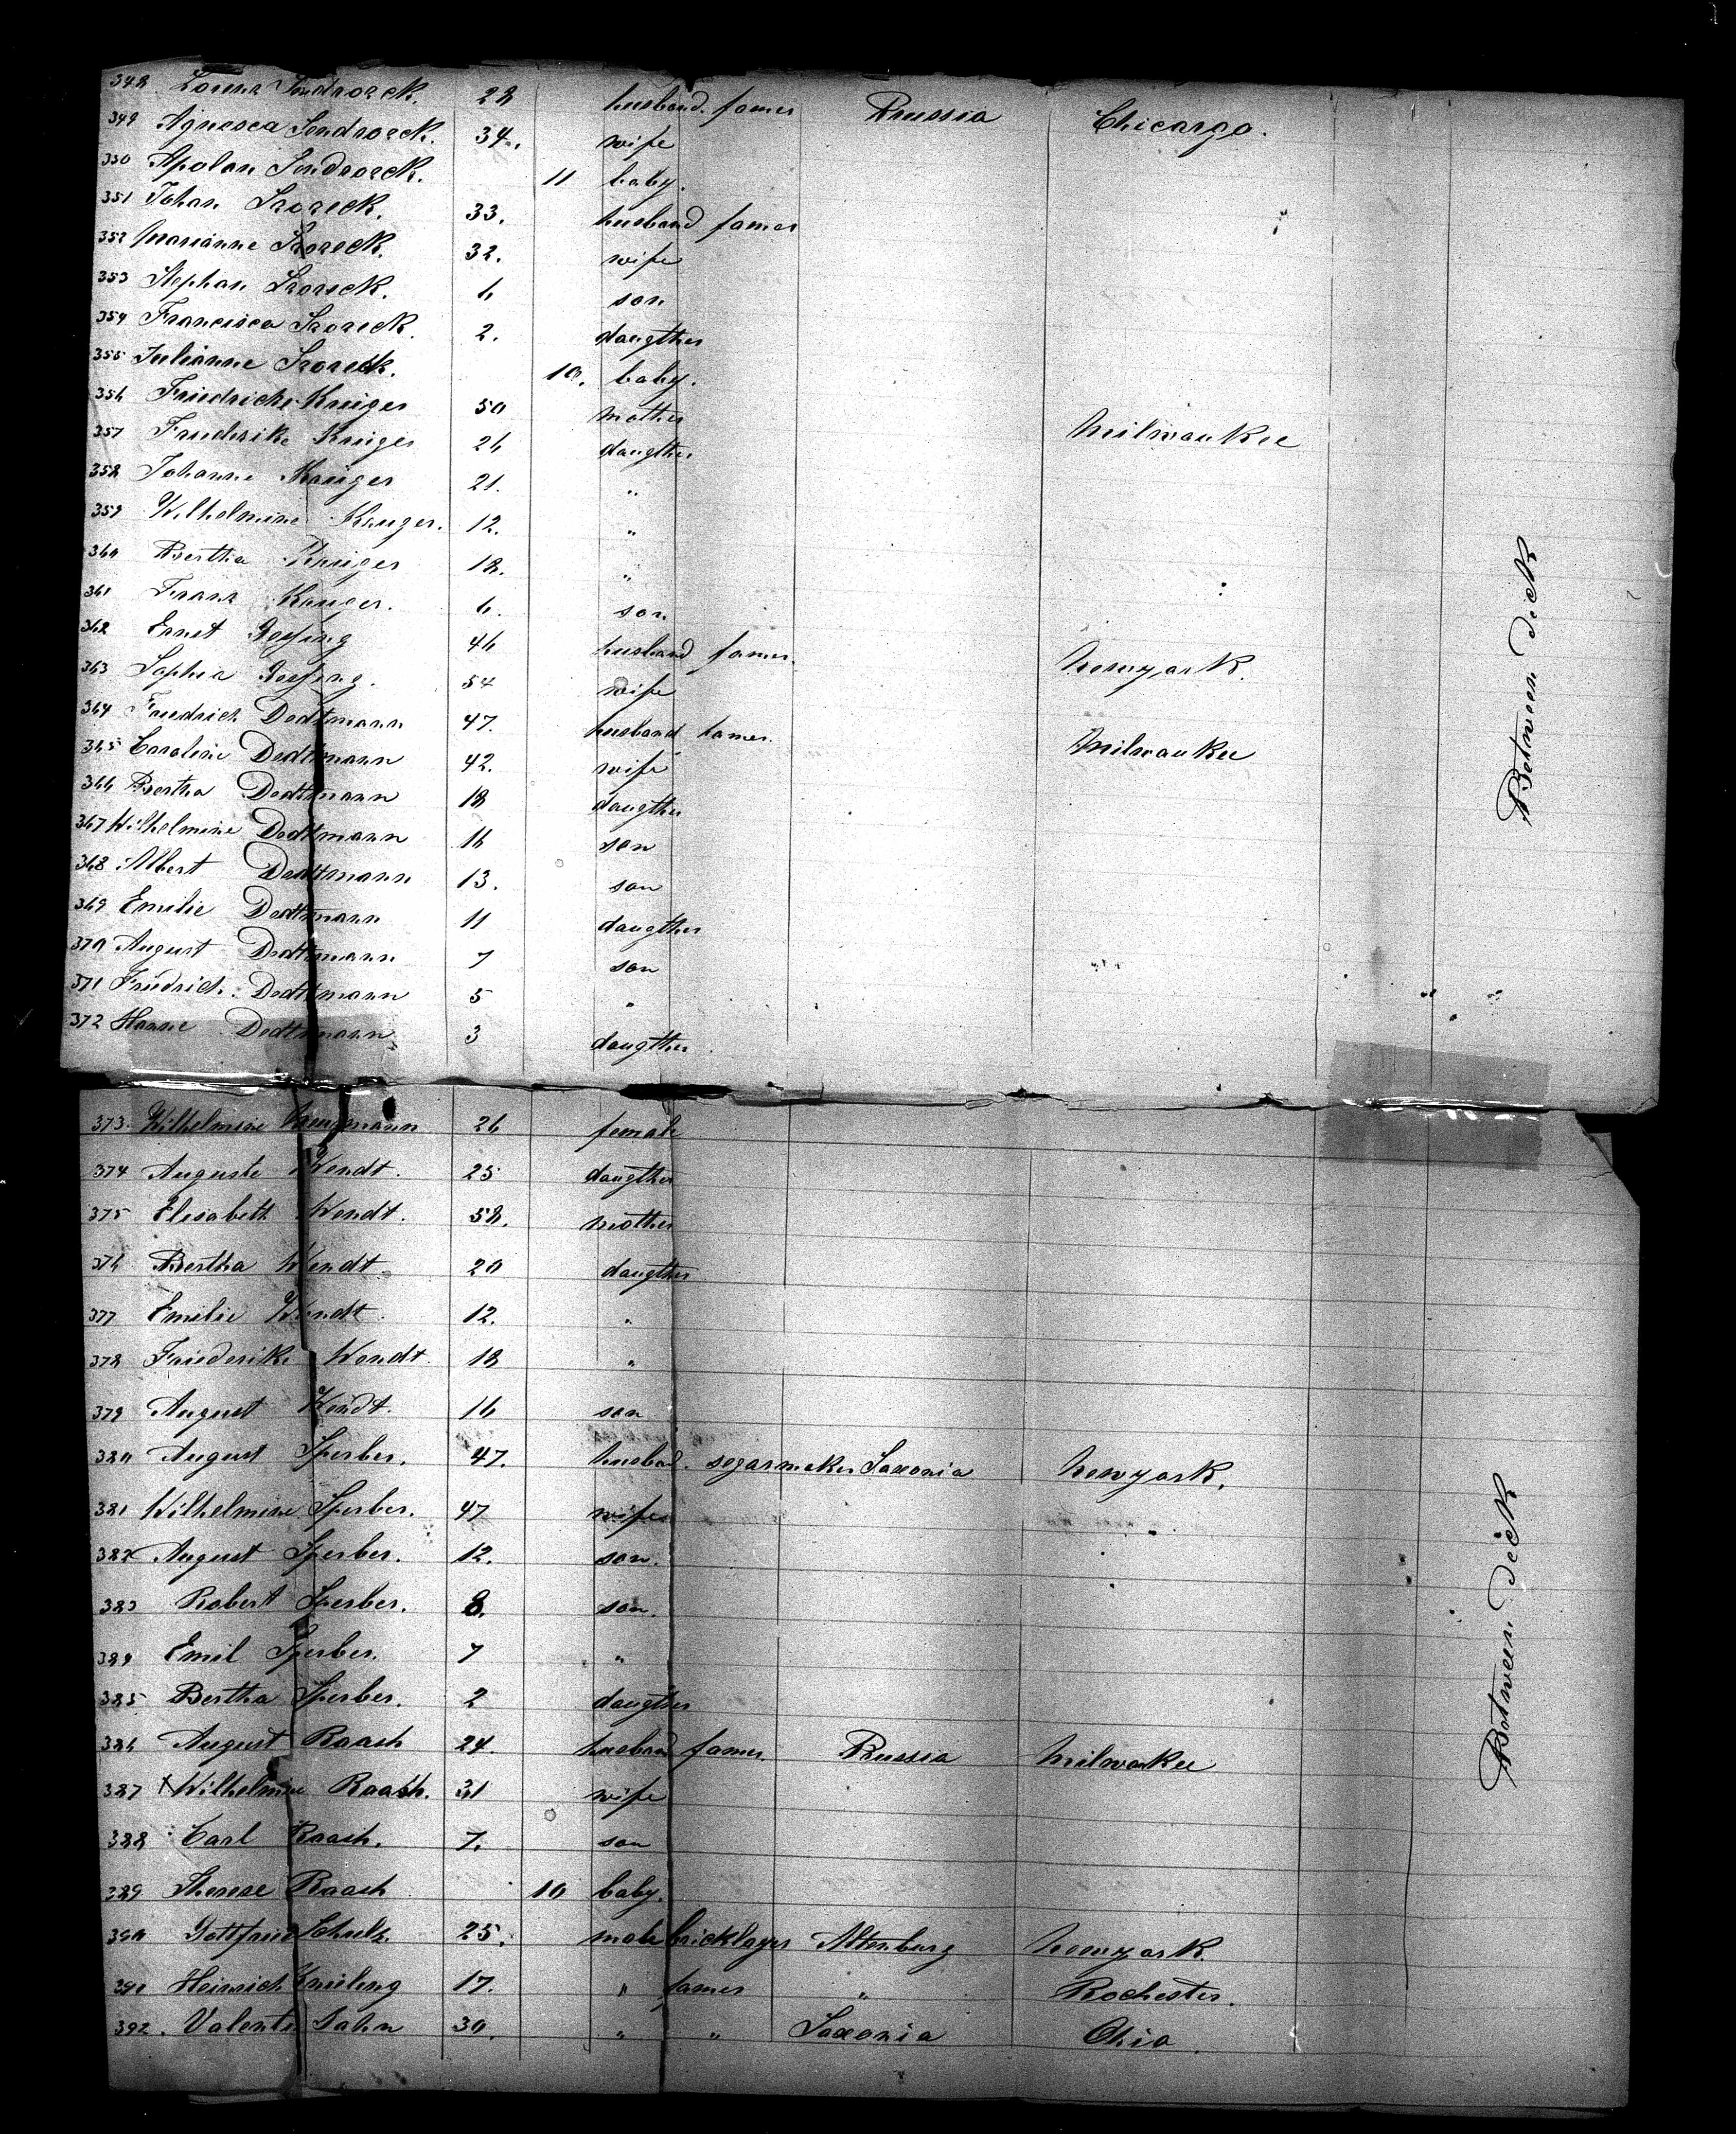 348. Lorenz Sendrozek. 28 husband. famer Prussia Chicargo.
349 Agnesca Sendrozek. 34. wife
350 Apolon Sendrozek. 11 baby.
351 Johan Szoreck. 33. husband famer
352 Marianne Szoreck. 32. wife
353 Stephan Szoreck. 6 son
354 Francisca Szoreck. 2. daugther
355 Julianne Szoreck. 10. baby.
356 Friedriche Kruger 50 mother Milwaukee
357 Friederike Kruger 26 daugther
358 Johanne Kruger 21. "
359 Wilhelmine Kruger. 12. "
360 Bertha Kruger 18. "
361 Franz Kruger. 6. son
362 Ernst 46 husband famer. Newyork.
363 Sophia 54 wife
364 Friedrich Dedtmann 47. husband famer. Milwaukee
365 Caroline Dedtmann 42. wife
366 Bertha Dedtmann 18 daugther
367 Wilhelmine Dedtmann 16 son
368 Albert Dedtmann 13. son
369 Emilie Dedtmann 11 daugther
370 August Dedtmann 7 son
371 Friedrich Dedtmann 5 "
372 Hanne Dedtmann 3 daugther
Between deck
373. Wilhelmine 26 female
374 Auguste Wendt. 25 daugther
375 Elisabeth Wendt. 58. mother
376 Bertha Wendt 20 daugther
377 Emilie Wendt. 12. "
378 Friederike Wendt. 18 "
379 August Wendt. 16 son
380 August Sperber. 47. husbad. segarmaker Saxonia Newyork.
381 Wilhelmine Sperber. 47 wife
382 August Sperber. 12. son.
383 Robert Sperber. 8. son.
384 Emil Sperber. 7 "
385 Bertha Sperber. 2 daugther
386 August Raash 24. husband famer Prussia Milwaukee
387 Wilhelmine Raash. 31 wife
388 Carl Raash. 7. son
389 Therese Raash 10 baby.
390 Gottfried Schulz 25. male bricklayer Altenburg Newyork.
391 Heinrich 17. " famer " Rochester.
392. Valentin Sahn 30. " " Saxonia Ohio.
Between deck